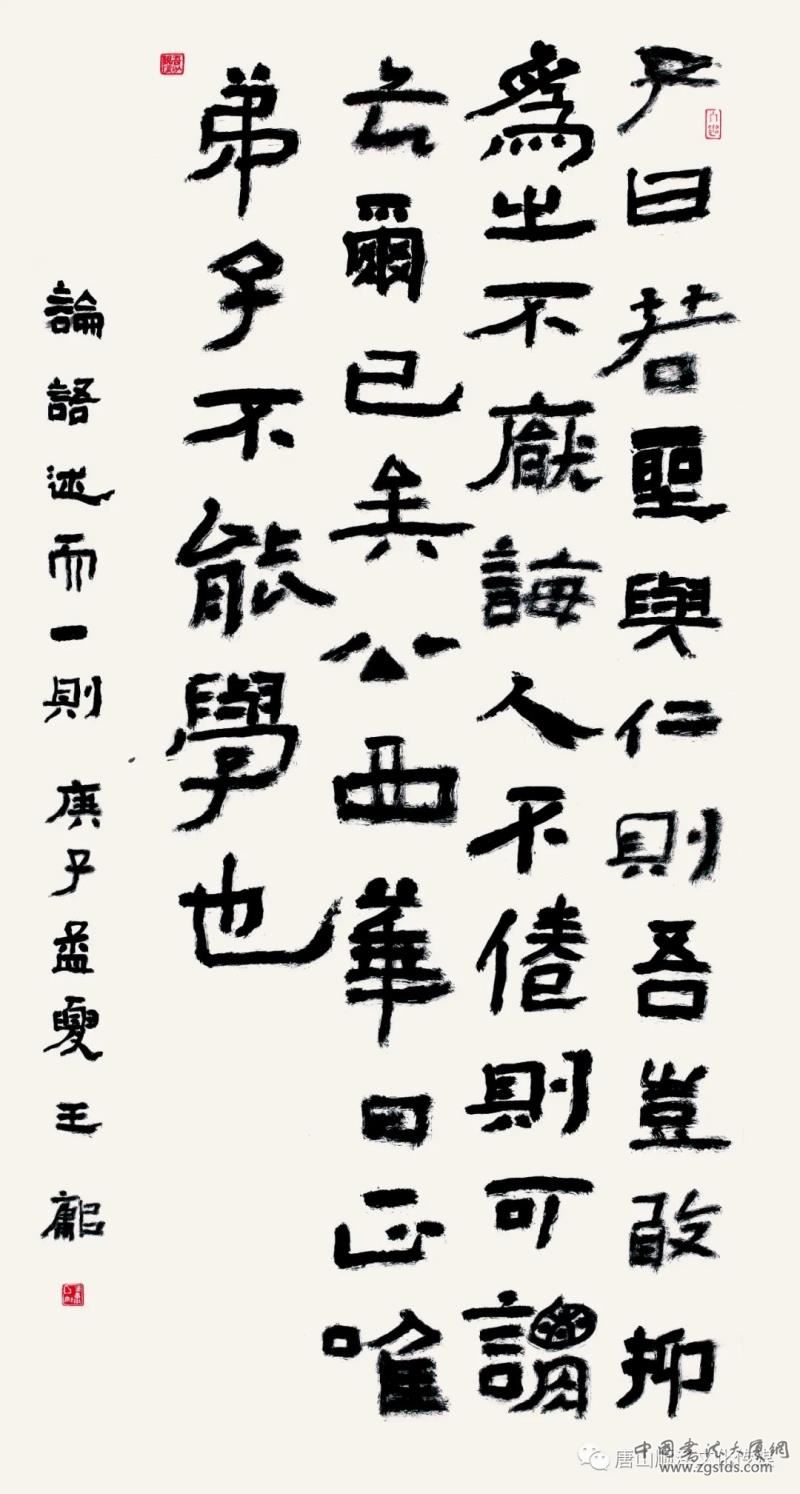 子曰若聖與仁則吾豈敢抑
爲之不厭誨人不倦則可謂
云爾已矣公西華曰正唯
弟子不能學也
論語述而一則 庚子孟夏 王
中国書法大厦網
www.zgsfds.com
唐山